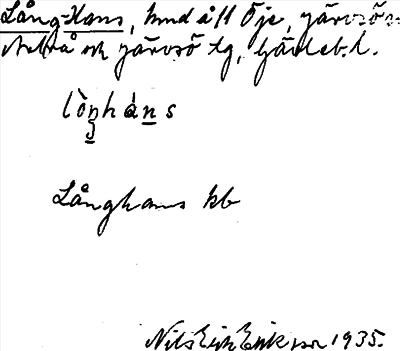 Lång-Hans, hmd å ll Öje, Järvsö sn
och Järvsö tg, Gävleb. l.
lòŋhàns
Långhans kb
Nils Erik Eriksson 1935.